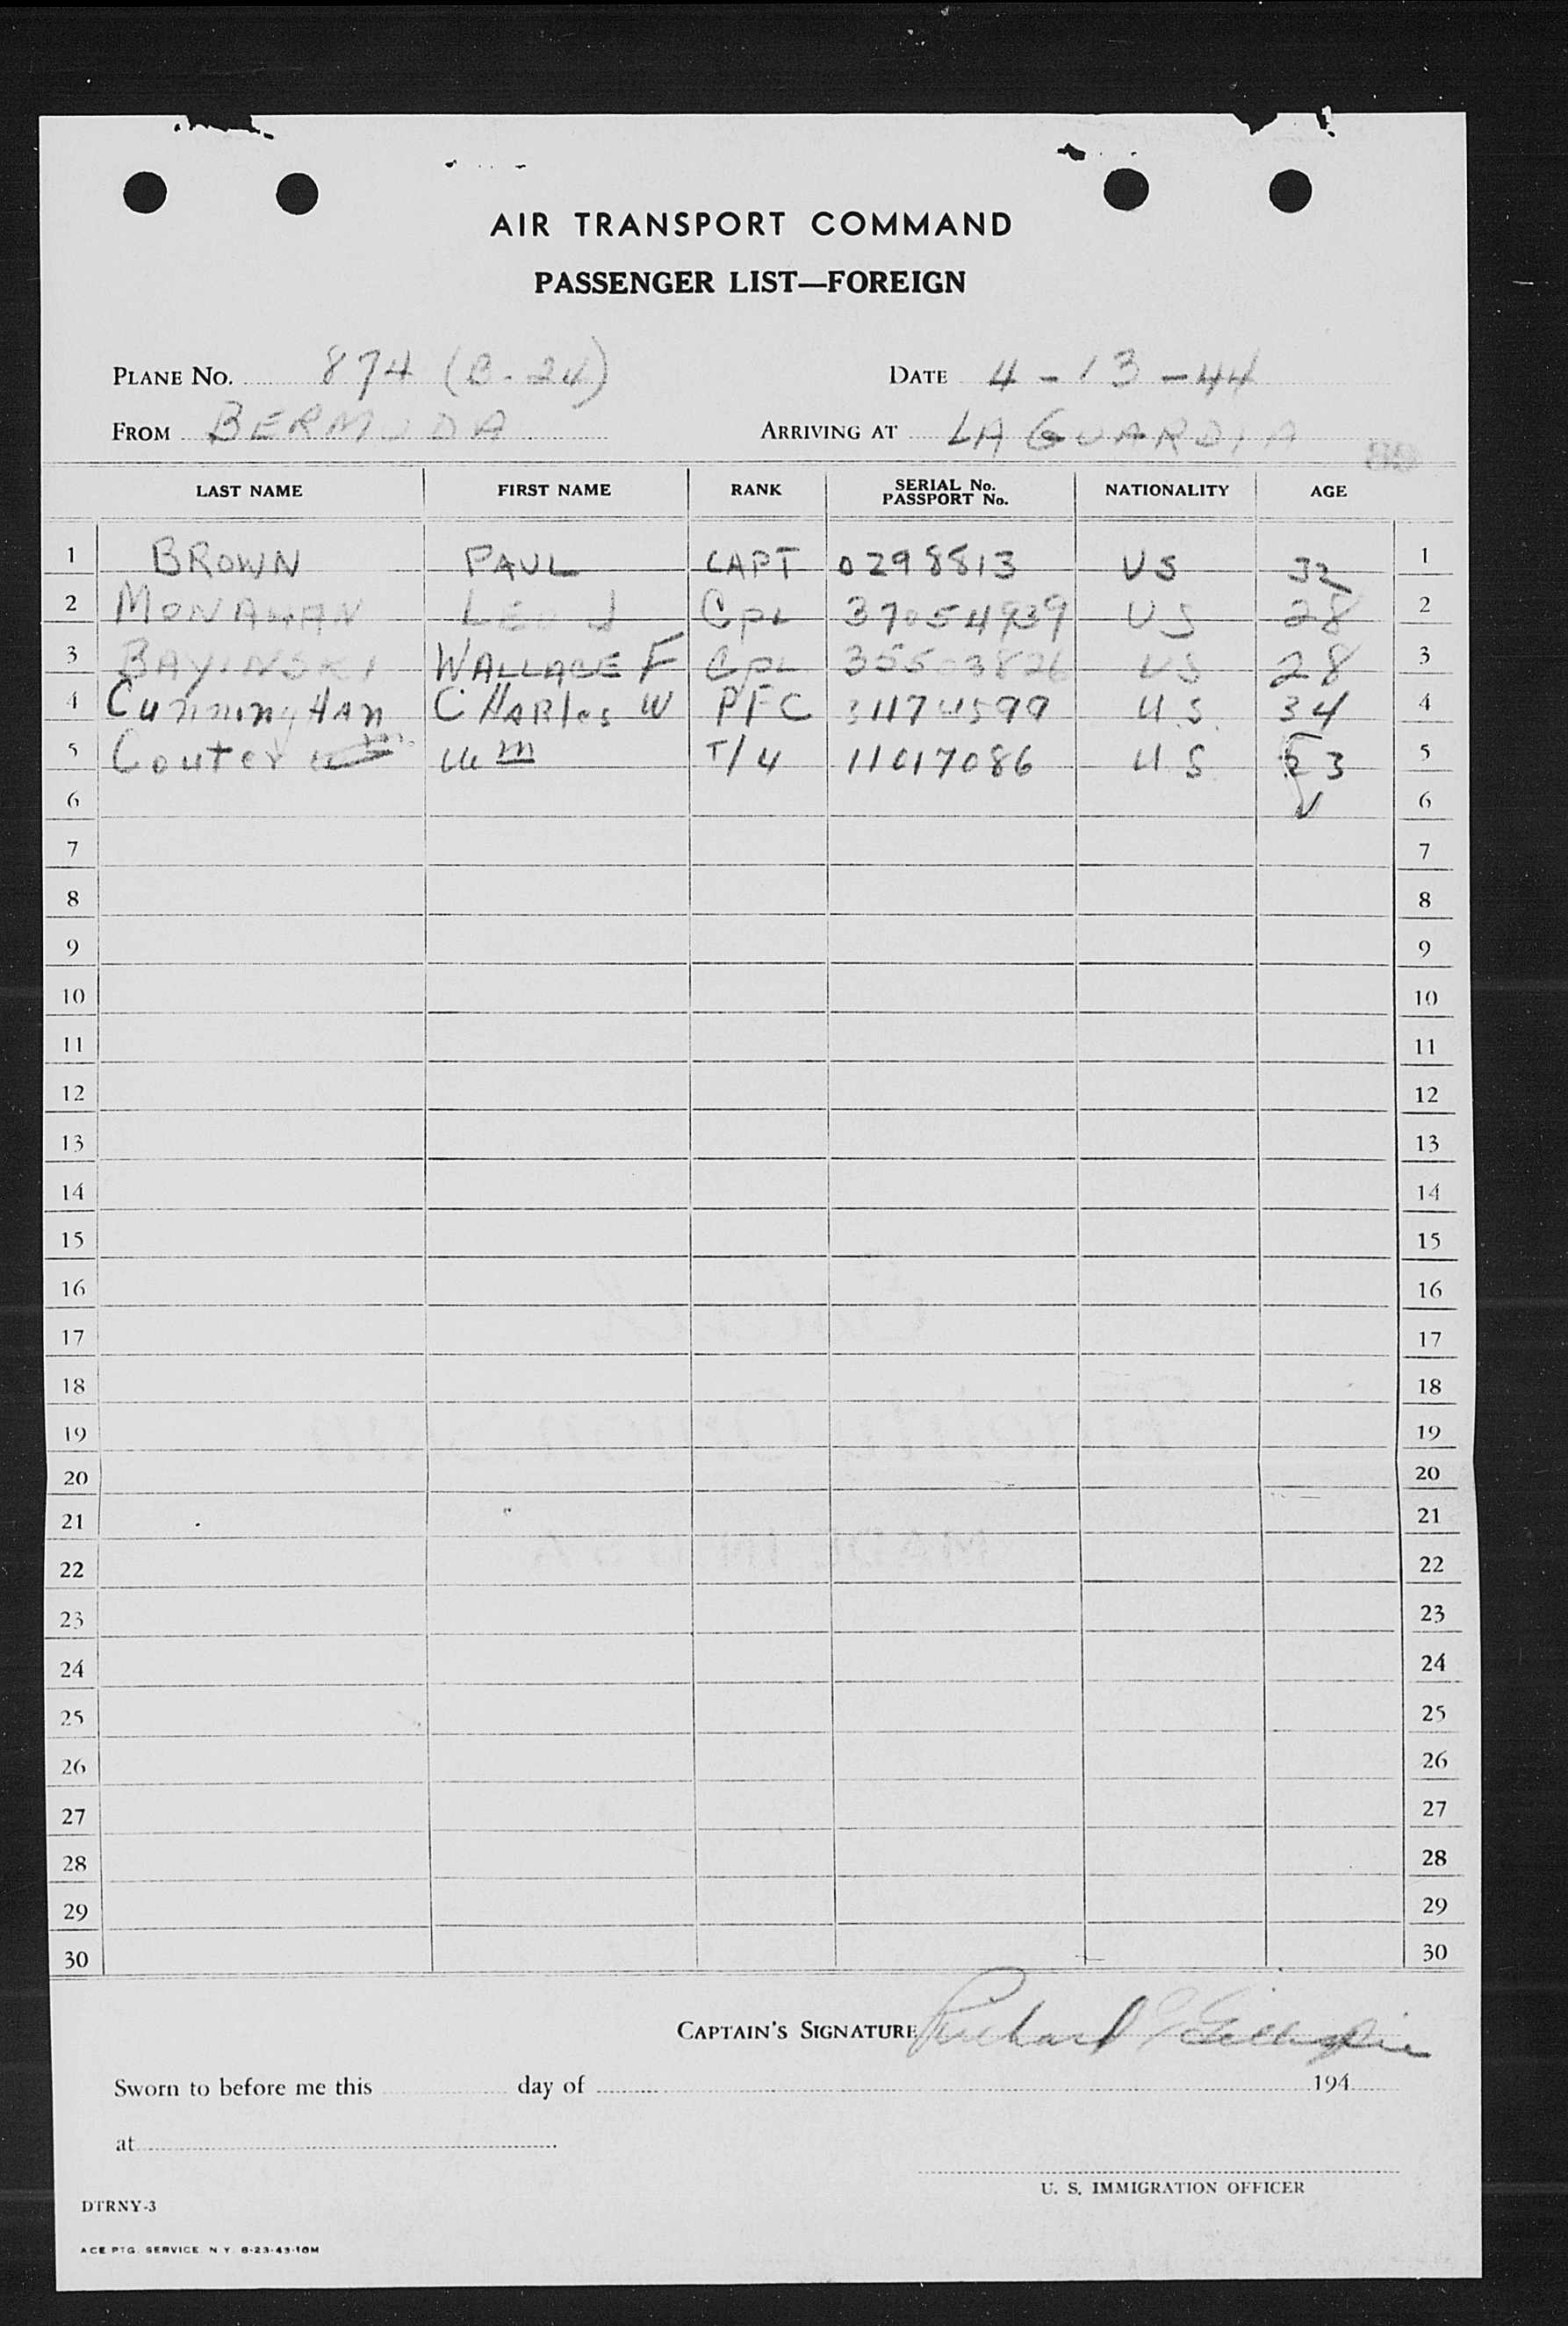 AIR TRANSPORT COMMAND
PASSENGER LIST—FOREIGN
PLANE No. 874 (B-24) DATE 4-13-44
FROM BERMUDA ARRIVING AT LA GUARDIA
LAST NAME FIRST NAME RANK SERIAL No. PASSPORT No. NATIONALITY AGE
1 BROWN PAUL CAPT 0298813 US 32 1
2 MONAHAN LEO J CPL 37054939 US 28 2
3 BAYINSKI WALLACE F CPL 35503826 US 28 3
4 CunningHAn CHARles W PFC U.S. 34 4
5 Couter Wm T/4 11017086 U S 5
6 6
7 7
8 8
9 9
10 10
11 11
12 12
13 13
14 14
15 15
16 16
17 17
18 18
19 19
20 20
21 21
22 22
23 23
24 24
25 25
26 26
27 27
28 28
29 29
30 30
CAPTAIN'S SIGNATURE Richard G Gillespie
Sworn to before me this day of 194
at
U. S. IMMIGRATION OFFICER
DTRNY-3
ACE PTG. SERVICE. N.Y. 8-23-43-10M